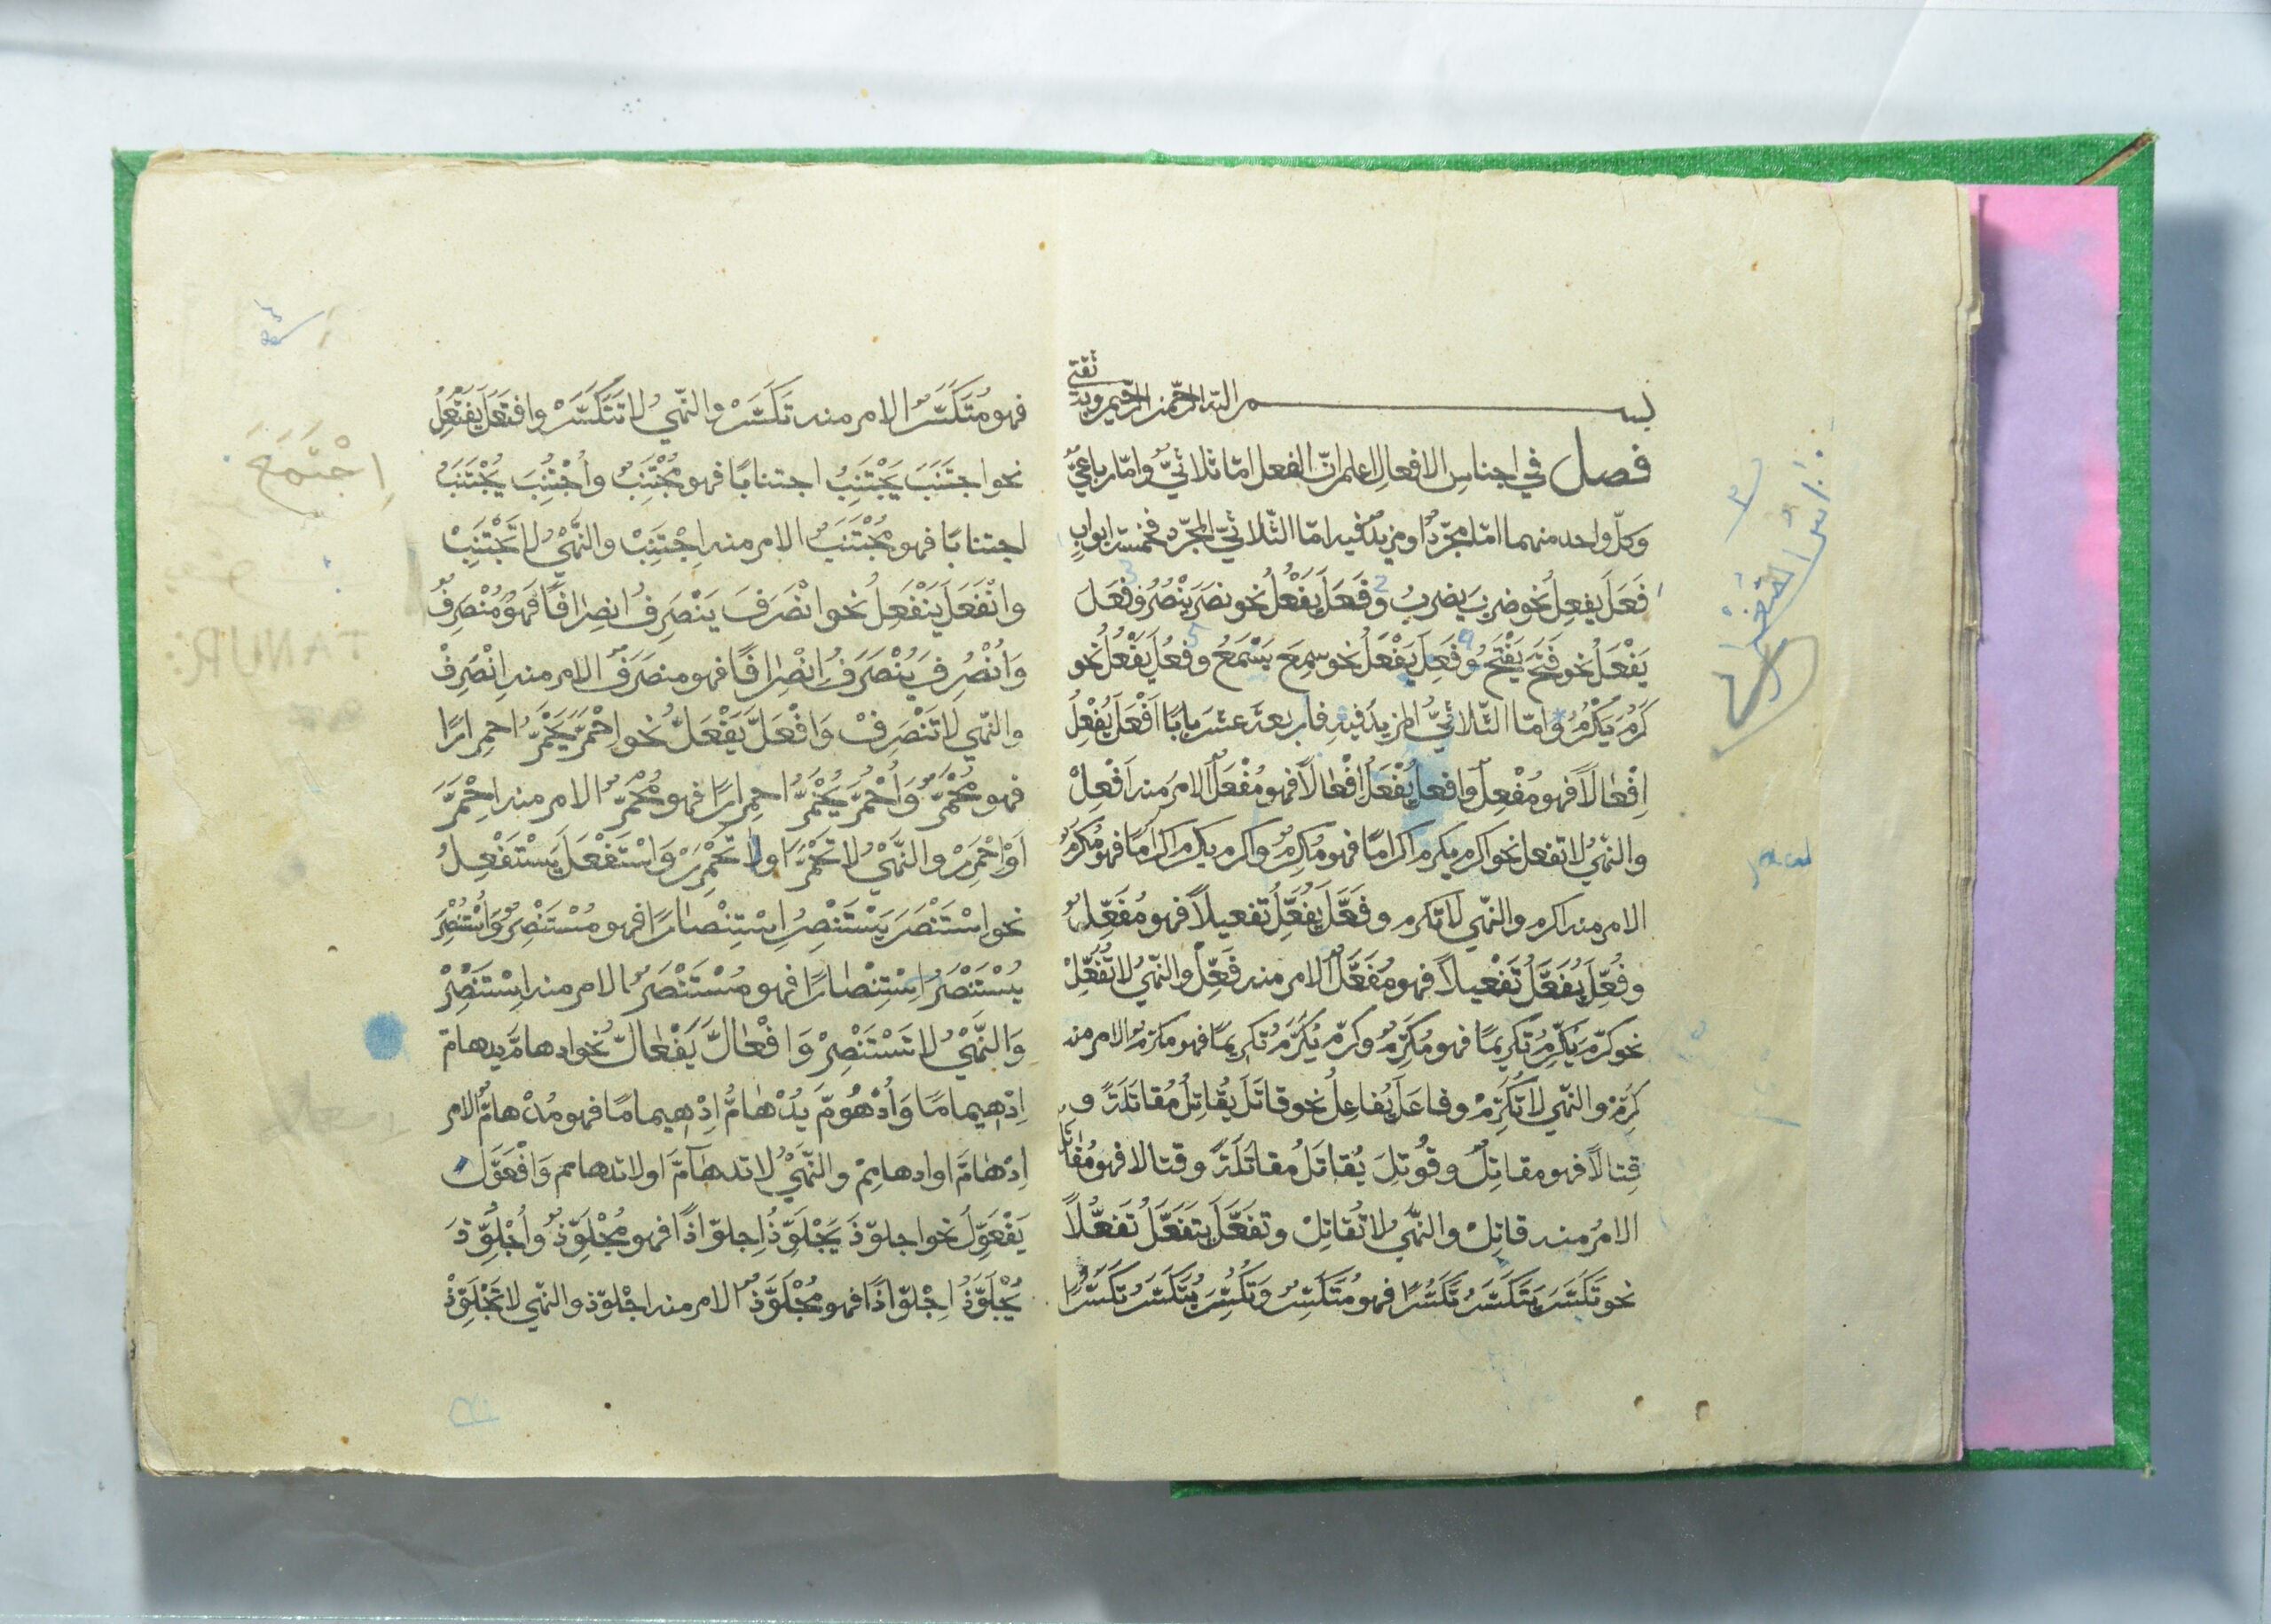 بسم الله الرحمن الرحيم وبه ثقتي
فصل في اجناسِ الافعالِ اعلم انّ الفعل امّا ثلاثيٌّ وامّا رباعيٌّ
وكلّ واحد منهما امّا مجرّدٌ او مزيدٌ فيه امّا الثّلاثيّ المجرّد فخمسة ابوابٍ
فَعَلَ يفعِلُ نحو ضربَ يضربُ وفَعَلَ يَفْعُلُ نحو نصَرَ يَنْصُرُ وفَعَلَ
يَفْعَلُ نحو فَتَحَ يَفْتَحُ وفَعِلَ يَفْعَلُ نحو سمِعَ يَسْمَعُ وفعُلَ يَفْعُلُ نحو
كَرُمَ يَكْرُمُ وامّا الثّلاثيُّ المزيدُ فيهِ فاربعةَ عشَرَ بابًا اَفْعَلَ يُفْعِلُ
اِفْعالاً فهو مُفْعِلٌ وافعل يُفْعَلُ افْعالاً فهو مُفْعَلٌ الامر منه اَفْعِلْ
والنّهيُ لا تفعل نحو اكرم يكرم اكرامًا فهو مُكرِمٌ واكرم يكرم اكرامًا فهو مُكرَمٌ
الامر منه اكرم والنّهي لا تكرم وفَعَّلَ يُفَعِّلُ تفعيلاً فهو مُفَعِّلٌ
وفُعِّلَ يُفَعَّلُ تَفْعيلاً فهو مُفَعَّلٌ الامر منه فَعِّلْ والنّهيُ لا تُفَعِّلْ
نحو كرّمَ يُكَرِّمُ تكريمًا فهو مُكَرِّمٌ وكرّم يُكَرَّمُ تكريمًا فهو مكرّمٌ الامر منه
كرِّمْ والنّهي لا تُكَرِّمْ وفاعَلَ يُفاعِلُ نحو قاتَلَ يُقاتِلُ مُقاتَلَةً و
قِتالاً فهو مقاتِلٌ وقُوتِلَ يُقاتَلُ مقاتَلَةً وقتالا فهو مُقاتَلٌ
الامرُ منه قاتِلْ والنّهيُ لا تُقاتِلْ وتفَعَّلَ يتَفَعَّلُ تَفَعُّلاً
نحو تَكَسَّرَ يَتَكَسَّرُ تَكَسُّرًا فهو مُتَكَسِّرٌ وَتُكُسِّرَ يُتَكَسَّرُ تَكَسُّرًا
فهو مُتَكَسَّرٌ الامر منه تَكَسَّرْ والنّهيُ لا تَتَكَسَّرْ وافتَعَلَ يَفْتَعِلُ
نحو اجتَنَبَ يَجْتَنِبُ اجتنابًا فهو مُجْتَنِبٌ وأُجْتُنِبَ يُجْتَنَبُ
اجتنابًا فهو مُجْتَنَبٌ الامر منه اِجْتَنِبْ والنَّهْيُ لا تَجْتَنِبْ
وانْفَعَلَ يَنْفَعِلُ نحو انْصَرَفَ يَنْصَرِفُ انصِرافًا فَهو مُنْصَرِفٌ
وَاُنْصُرِفَ يُنْصَرَفُ اِنْصِرافًا فهو منصَرَفٌ الامر منه اِنْصَرِفْ
والنّهي لا تَنْصَرِفْ وَافْعَلَّ يَفْعَلُّ نحو اِحْمَرَّ يَحْمَرُّ احمِرارًا
فهو مُحْمَرٌّ وَاُحْمُرَّ يُحْمَرُّ احمِرارًا فهو مُحْمَرٌّ الامر منه احْمَرَّ
اَوْ احْمَرِرْ والنَّهْيُ لا تَحْمَرَّ اولا تَحْمَرِرْ وَاسْتَفْعَلَ يَسْتَفْعِلُ
نحو اسْتَنْصَرَ يَسْتَنْصِرُ اِسْتِنْصارًا فهو مُسْتَنْصِرٌ وَاُسْتُنْصِرَ
يُسْتَنْصَرُ اِسْتِنْصارًا فهو مُسْتَنْصَرٌ الامر منه اِسْتَنْصِرْ
وَالنَّهْيُ لا تَسْتَنْصِرْ وَافْعَالَّ يَفْعَالُّ نحو ادهامَّ يدهامّ
اِدْهِيمامًا وَاُدْهُومَّ يُدْهامُّ اِدْهِيمامًا فهو مُدْهامٌّ الامر
اِدْهامَّ او ادهامِمْ والنَّهْيُ لا تدهآمَّ اولا تدهامم وَافْعَوَّلَ
يَفْعَوِّلُ نحو اجلوّذَ يَجْلَوِّذُ اِجلوّاذًا فهو مُجْلَوِّذٌ وَاُجْلُوِّذَ
يُجْلَوَّذُ اِجْلوّاذًا فهو مُجْلَوَّذٌ الامر منه اجْلَوّذ والنّهي لا تَجْلَوِّذْ
اِجْتَمَعَ
TANUR: